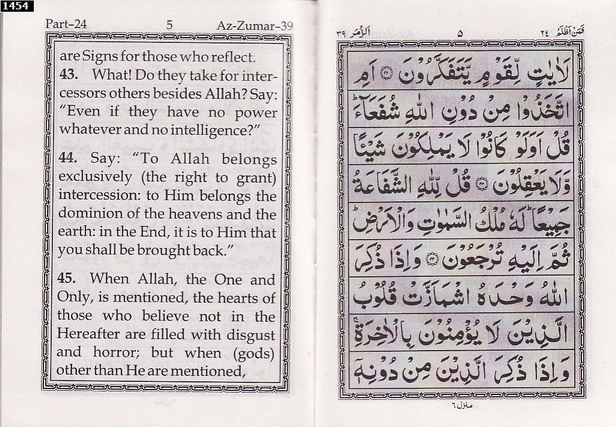 1454
Part-24 5 Az-Zumar-39
are Signs for those who reflect.
43. What! Do they take for inter-
cessors others besides Allah? Say:
“Even if they have no power
whatever and no intelligence?”
44. Say: “To Allah belongs
exclusively (the right to grant)
intercession: to Him belongs the
dominion of the heavens and the
earth: in the End, it is to Him that
you shall be brought back.”
45. When Allah, the One and
Only, is mentioned, the hearts of
those who believe not in the
Hereafter are filled with disgust
and horror; but when (gods)
other than He are mentioned,
فَمَنْ اَظْلَمُ ٢٤ ٥ اَلزُّمَر ٣٩
لَاٰيٰتٍ لِّقَوْمٍ يَّتَفَكَّرُوْنَ ﴿٤٢﴾ اَمِ
اتَّخَذُوْا مِنْ دُوْنِ اللّٰهِ شُفَعَآءَ ؕ
قُلْ اَوَلَوْ كَانُوْا لَا يَمْلِكُوْنَ شَيْئًا
وَّلَا يَعْقِلُوْنَ ﴿٤٣﴾ قُلْ لِّلّٰهِ الشَّفَاعَةُ
جَمِيْعًا ؕ لَهٗ مُلْكُ السَّمٰوٰتِ وَالْاَرْضِ ؕ
ثُمَّ اِلَيْهِ تُرْجَعُوْنَ ﴿٤٤﴾ وَاِذَا ذُكِرَ
اللّٰهُ وَحْدَهُ اشْمَاَزَّتْ قُلُوْبُ
الَّذِيْنَ لَا يُؤْمِنُوْنَ بِالْاٰخِرَةِ ۚ
وَاِذَا ذُكِرَ الَّذِيْنَ مِنْ دُوْنِهٖٓ
منزل ٦